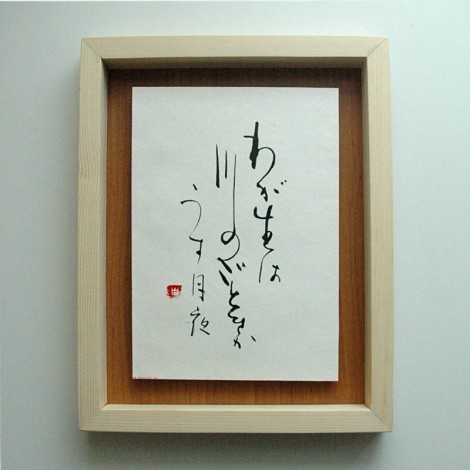 わが生は
川のごときか
うす月夜